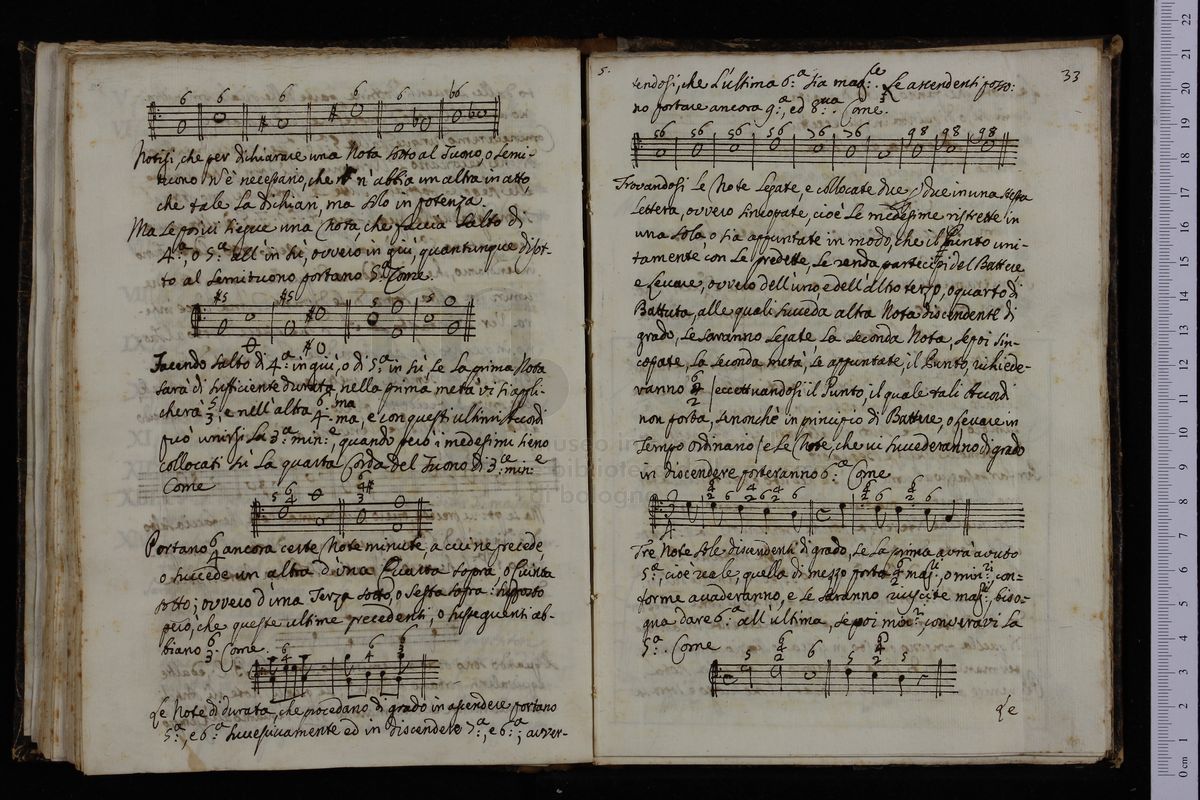 6 6 6 6 6 6
Notisi, che per dichiarare una Nota sotto al Tuono, o semi-
tuono n'è necessario, che n'abbia un altra in atto,
che tale la dichiari, ma solo in potenza.
Ma se poi vi siegue una Nota, che faccia salto di
4.ª o 5.ª all'in sù, ovvero in giù, quantunque disot-
to al semituono portano 5.ª Come.
#5 #5 5 5
Facendo salto di 4.ª in giù, o di 5.ª in sù se la prima Nota
sarà di sufficiente durata nella prima metà vi s'appli-
cherà 5/3, e nell'altra 6/4, e con questi ultimi Accordi
può unirsi la 3.ª min:e, quando però i medesimi sieno
collocati sù la quarta Corda del Tuono di 3.ª min:e
Come
5 6/4
Portano 6/4 ancora certe Note minute a cui ne precede,
o succede un altra d'una Quarta sopra, o Quinta
sotto; ovvero d'una Terza sotto, o Sesta sopra: supposto
però, che queste ultime precedenti, o susseguenti ab-
biano 6/3. Come.
Le Note di durata, che procedano di grado in ascendere portano
5.ª, e 6.ª successivamente ed in discendere 7.ª, e 6.ª; avver-
5.
33
tendosi, che l'ultima 6.ª sia mag:re. Le ascendenti posso:
no portare ancora 9.ª, ed 8.va. Come.
56 56 56 56 76 76 98 98 98
Trovandosi le Note legate, e collocate due, o dice in una stessa
Lettera, ovvero sincopate, cioè le medesime ristrette in
una sola, o sia appuntate in modo, che il Punto uni-
tamente con le predette, le renda partecipi del Battere
e Levare, ovvero dell'uno, e dell'alto terzo, o quarto di
Battuta, alle quali succeda altra Nota discendente di
grado, se saranno legate la seconda Nota, se poi sin-
copate, la seconda metà, se appuntate, il Punto, richiede-
ranno 6/4/2 (eccettuandosi il Punto, il quale tali Accordi
non porta, senonchè in principio di Battere, o levare in
Tempo ordinario) e le Note, che vi succederanno di grado
in discendere porteranno 6.ª Come
Tre Note sole discendenti di grado, se la prima avrà avuto
5.ª, cioè reale; quella di mezzo porta 6/4/2 mag:ri, o min:ri con-
forme accaderanno, e se saranno riuscite mag:ri, biso-
gna dare 6.ª all'ultima, se poi min:ri, converravi la
5.ª. Come
5 6/4/2 6 5 6/4/2 5
Le